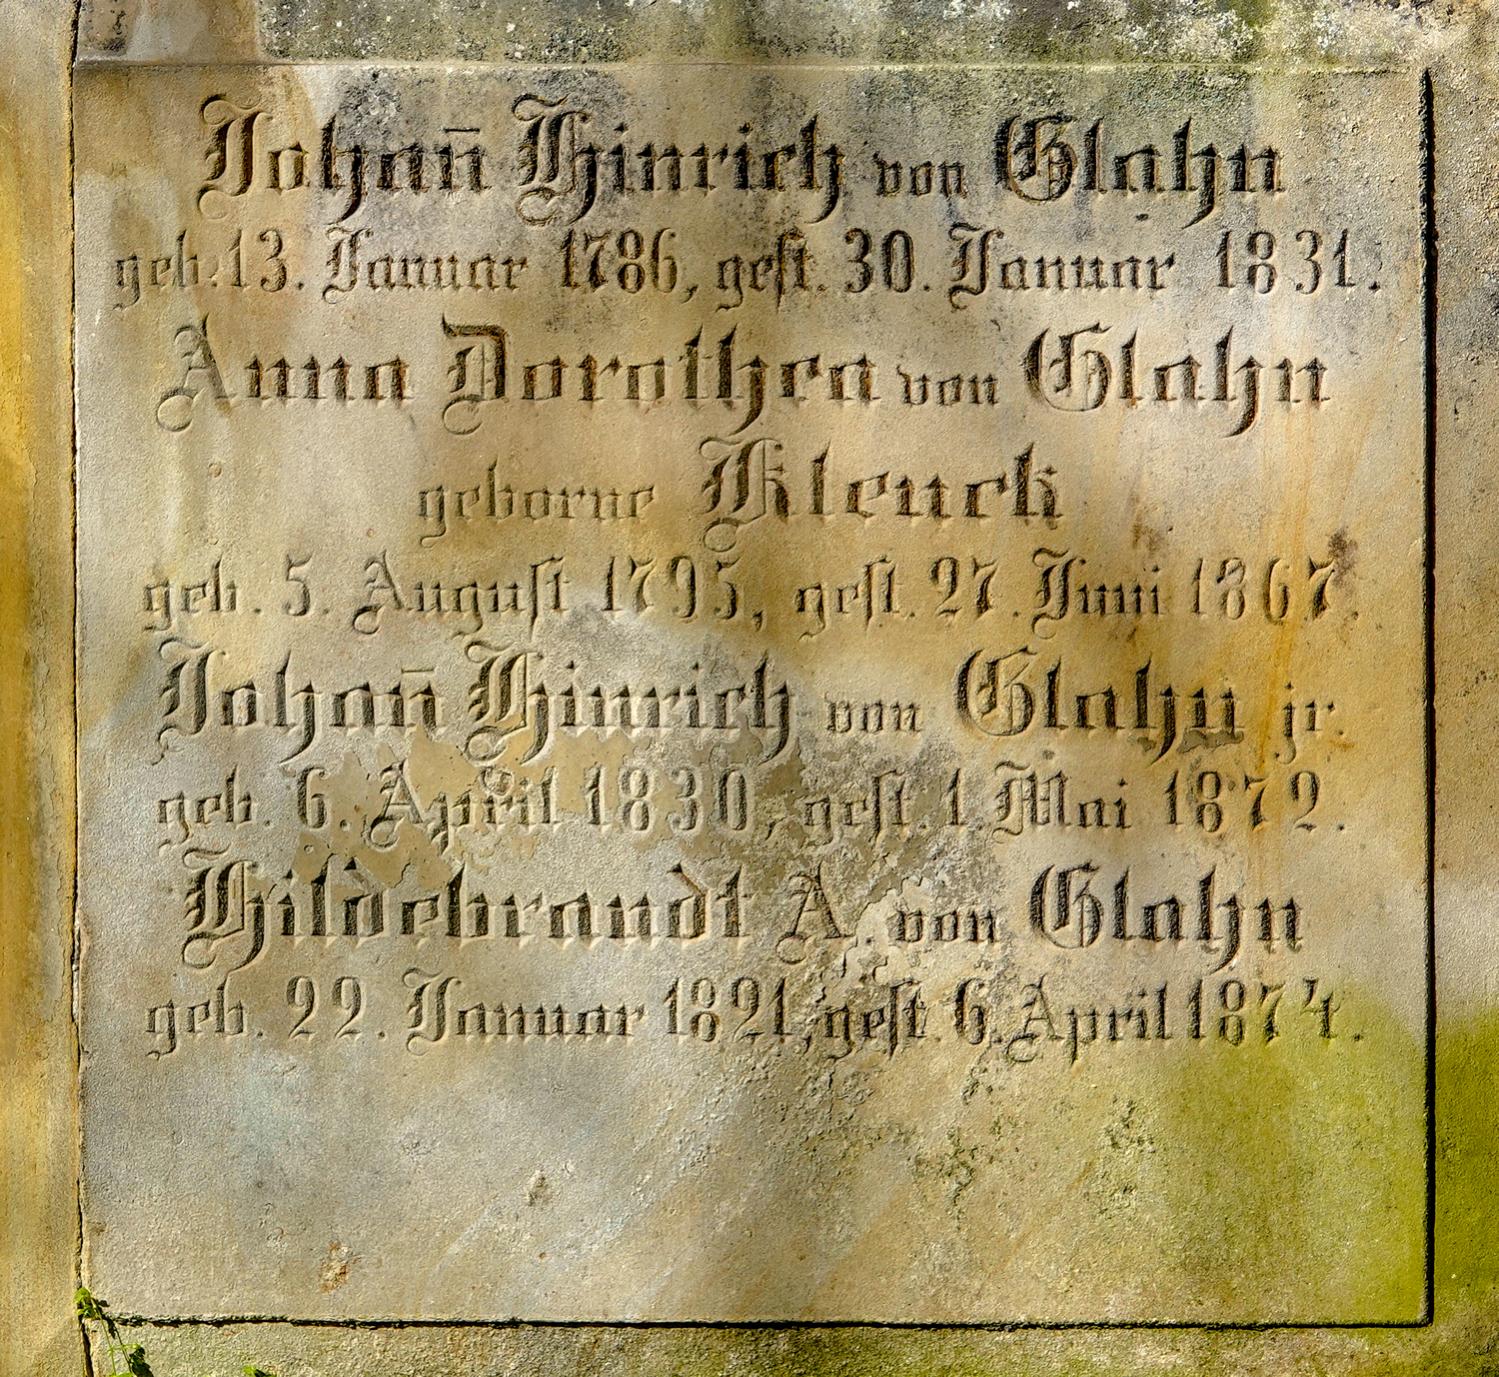 Johan̄ Hinrich von Glahn
geb. 13. Januar 1786, gest. 30. Januar 1831.
Anna Dorothea von Glahn
geborne Klenck
geb. 5. August 1795, gest. 27. Juni 1867.
Johan̄ Hinrich von Glahn jr.
geb. 6. April 1830, gest. 1 Mai 1872.
Hildebrandt A. von Glahn
geb. 22. Januar 1821, gest. 6. April 1874.